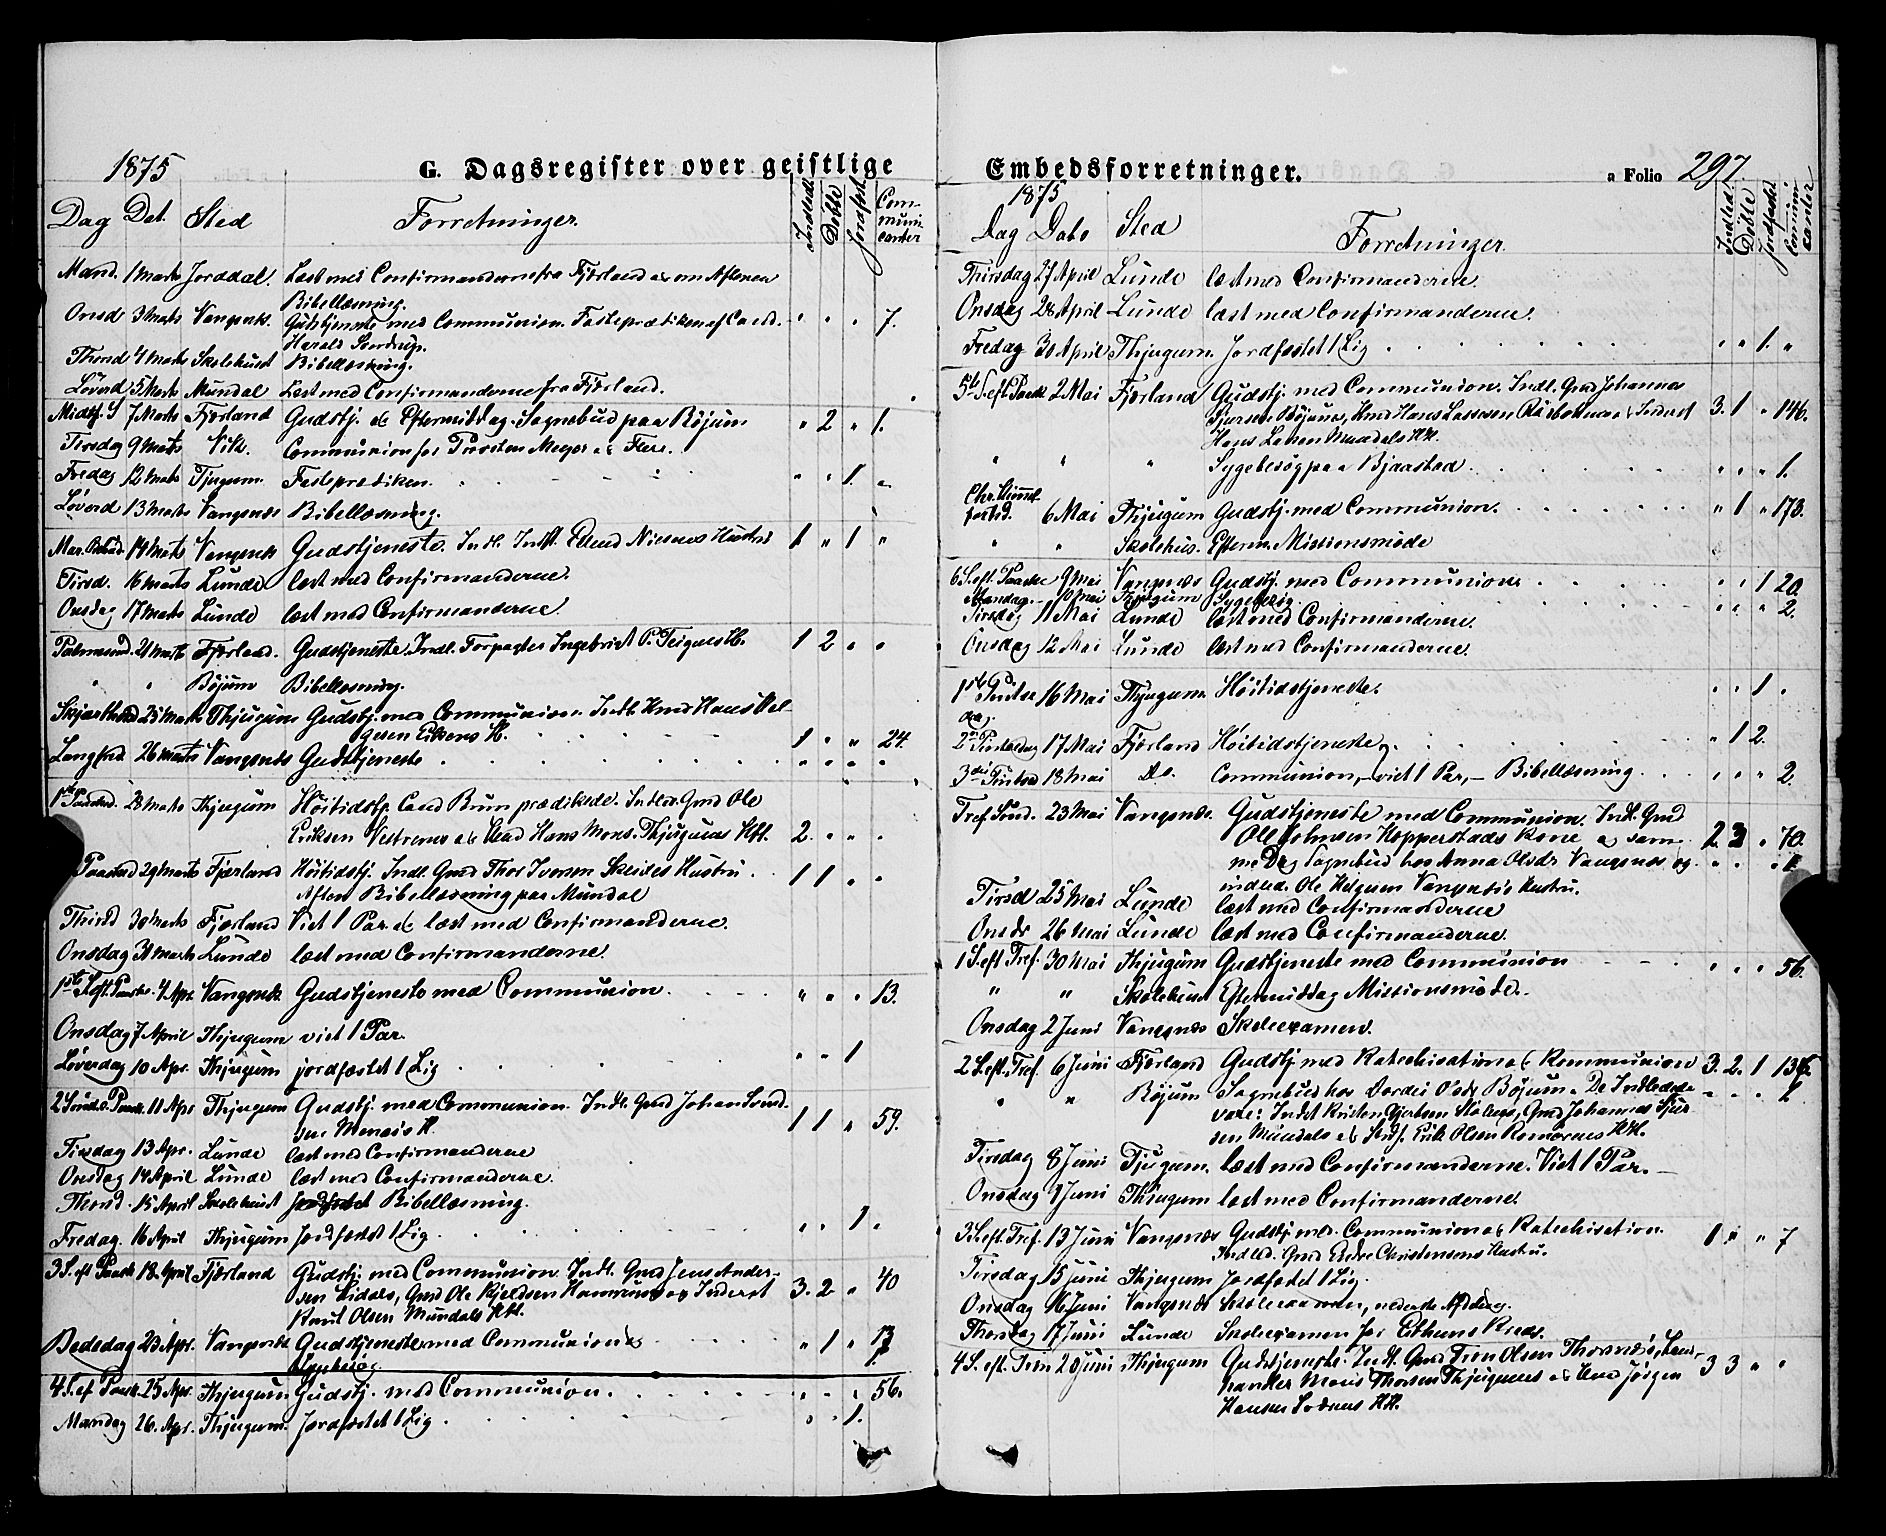 1875
G. Dagsregister over geistlige
Dag Dat. Sted Forretninger. Indledt Döbte Jordfæst Communicanter
Mand. 1 Marts Jorddal. Læst med Confirmanderne fra Fjærland om Aftenen
Bibellæsning.
Onsd 3 Marts Vangsnæs. Gudstjeneste med Communion. Fasteprædiken af Cand. " " " 7.
Harald
Thorsd 4 Marts Skolehuset Bibellæsning.
Löverd 5 Marts Mundal Læst med Confirmanderne fra Fjærland.
Midtf. S 7 Marts Fjærland Gudstj. & Eftermiddag. Sognebud paa Böjum " 2 " 1.
Tirsdag 9 Marts Vik. Communion for Thorsten Meyer & Flere.
Fredag 12 Marts Tjugum. Fasteprediken. " " 1 "
Löverd 13 Marts Vangsnæs Bibellæsning.
Mar. Bebud. 14 Marts Vangsnæs Gudstjeneste. Indl. Indst. Hustru 1 " 1 "
Tirsd. 16 Marts Lunde læst med Confirmanderne.
Onsdag 17 Marts Lunde læst med Confirmanderne.
Palmesund. 21 Marts Fjærland. Gudstjeneste. Indl. Forpagter Ingebrigt P. H. 1 2 " "
" " Böjum Bibellæsning.
Skjærthorsd 25 Marts Thjugum Gudstj. med Communion. Indl. Hmd Hans Hel-
gesen H. 1 " " 24.
Langfred. 26 Marts Vangsnæs Gudstjeneste " " " "
1ste Paaskd. 28 Marts Thjugum Höitidstj. Cand Brun prædikede. Indled. Gmd Ole
Eriksen & Hmd Hans Mons. Thjugums Hst. 2. " " "
Paaskd 29 Marts Fjærland Höitidstj. Indl. Gmd Thor Iversen Hustru 1 1 " "
Aften Bibellæsning paa Mundal
Thirsd 30 Marts Fjærland Viet 1 Par & læst med Confirmanderne.
Onsdag 31 Marts Lunde læst med Confirmanderne.
1ste S. eft. Paaske. 4 Apr. Vangsnæs Gudstjeneste med Communion. " " " 13.
Onsdag 7 April Thjugum viet 1 Par.
Löverdag 10 Apr. Thjugum jordfæstet 1 Lig " " 1
2 Sönd. e. Paask. 11 Apr Thjugum Gudstj. med Communion. Indl. Gmd Johan
sen H. 1 1 " 59.
Tirsdag 13 Apr. Lunde læst med Confirmanderne
Onsdag 14 April Lunde læst med Confirmanderne.
Thorsd. 15 April Skolehuset Bibellæsning.
Fredag. 16 April Thjugum Jordfæstet 1 Lig " " 1 "
3 S. eft Paask 18 April Fjærland Gudstj. med Communion. Indl. Gmd Jens Ander-
sen Gmd Ole Kjeldsen og Inderst 3. 2 " 40
Knut Olsen Mundals Hst.
Bededag 23 Apr. Vangsnæs Gudstjeneste med Communion & " 1 "
Sygebesög
4 S. ef Paask. 25 Apr. Thjugum Gudstj. med Communion. " " " 56.
Mandag 26. Apr. Thjugum. Jordfæstet 1 Lig " " 1.
Embedsforretninger. a Folio 297
1875
Dag Dato Sted Forretninger. Indledte Döbte Jordfæstet Communicanter
Thirsdag 27 April Lunde læst med Confirmanderne.
Onsdag 28 April Lunde læst med Confirmanderne.
Fredag 30 April Thjugum. Jordfæstet 1 Lig " " 1. "
5te S. eft. Paask 2 Mai Fjærland Gudstj. med Communion. Indl. Gmd Johannes
Sjursen Böjum, Hmd Hans Lassesen & Inderst 3. 1 " 146.
Hans Larsen Mundals HH.
" " " Sygebesög paa Bjaastad. " " " 1.
Chr. Himmel-
fartsd. 6 Mai Thjugum Gudstj. med Communion. " 1 " 173.
" " Skolehus. Efterm. Missionsmöde
6 S. eft. Paaske 9 Mai Vangsnæs Gudstj. med Communion " " 1 20.
Mandag 10 Mai Thjugum Sygebesög. " " " 2.
Tirsdag 11 Mai Lunde læst med Confirmanderne.
Onsdag 12 Mai Lunde læst med Confirmanderne.
1ste Pintse 16 Mai Thjugum. Höitidstjeneste. " " 1 "
dag.
2den Pintsedag 17 Mai Fjærland Höitidstjeneste. " 1 2.
3die Pintsed 18 Mai do. Communion,- viet 1 Par,- Bibellæsning. " " " 2
Tref. Sönd. 23 Mai Vangsnæs. Gudstjeneste med Communion. Indl. Gmd
Ole Johnsen Hopperstads Kone og sam- 2. 3 " 70.
me Dag Sognebud hos Anna Olsdr Vangsnæs og " " " 1
indled. Ole Helgesen Vangsnæs Hustru.
Tirsd 25 Mai Lunde læst med Confirmanderne
Onsdr 26 Mai Lunde læst med Confirmanderne.
1 S. eft Tref. 30 Mai Thjugum Gudstjeneste med Communion " " " 56.
" " Skolehuset Eftermiddag Missionsmöde.
Onsdag 2 Juni Vangsnæs Skoleexamen.
2 S. eft. Tref. 6 Juni Fjærland Gudstj. med Katechisation & Kommunion 3. 2. 1
" " Böjum Sognebud hos Dordei Olsdr Böjum. De Indledede " " "
vare: Indst Kristen Gmd Johannes Sjur-
sen Mundals & Indst. Erik Olsen HH.
Tirsdag 8 Juni Tjugum. læst med Confirmanderne. Viet 1 Par.
Onsdag 9 Juni Thjugum læst med Confirmanderne.
3 S. eft. Tref. 13 Juni Vangsnæs Gudstj. med Communion & Katechisation. 1 " " 7
Indled. Gmd Endre Christensens Hustru.
Tirsdag 15 Juni Thjugum Jordfæstet 1 Lig
Onsdag 16 Juni Vangsnæs Skoleexamen, nederste Afdeling.
Thorsdag 17 Juni Lunde Skoleexamen for Kreds.
4 S. eft. Trin 20 Juni Thjugum Gudstjeneste. Indl. Gmd Olsen
handler Mons Thorsen Thjugums & Hmd Jörgen 3 3 " "
Hansen HH.